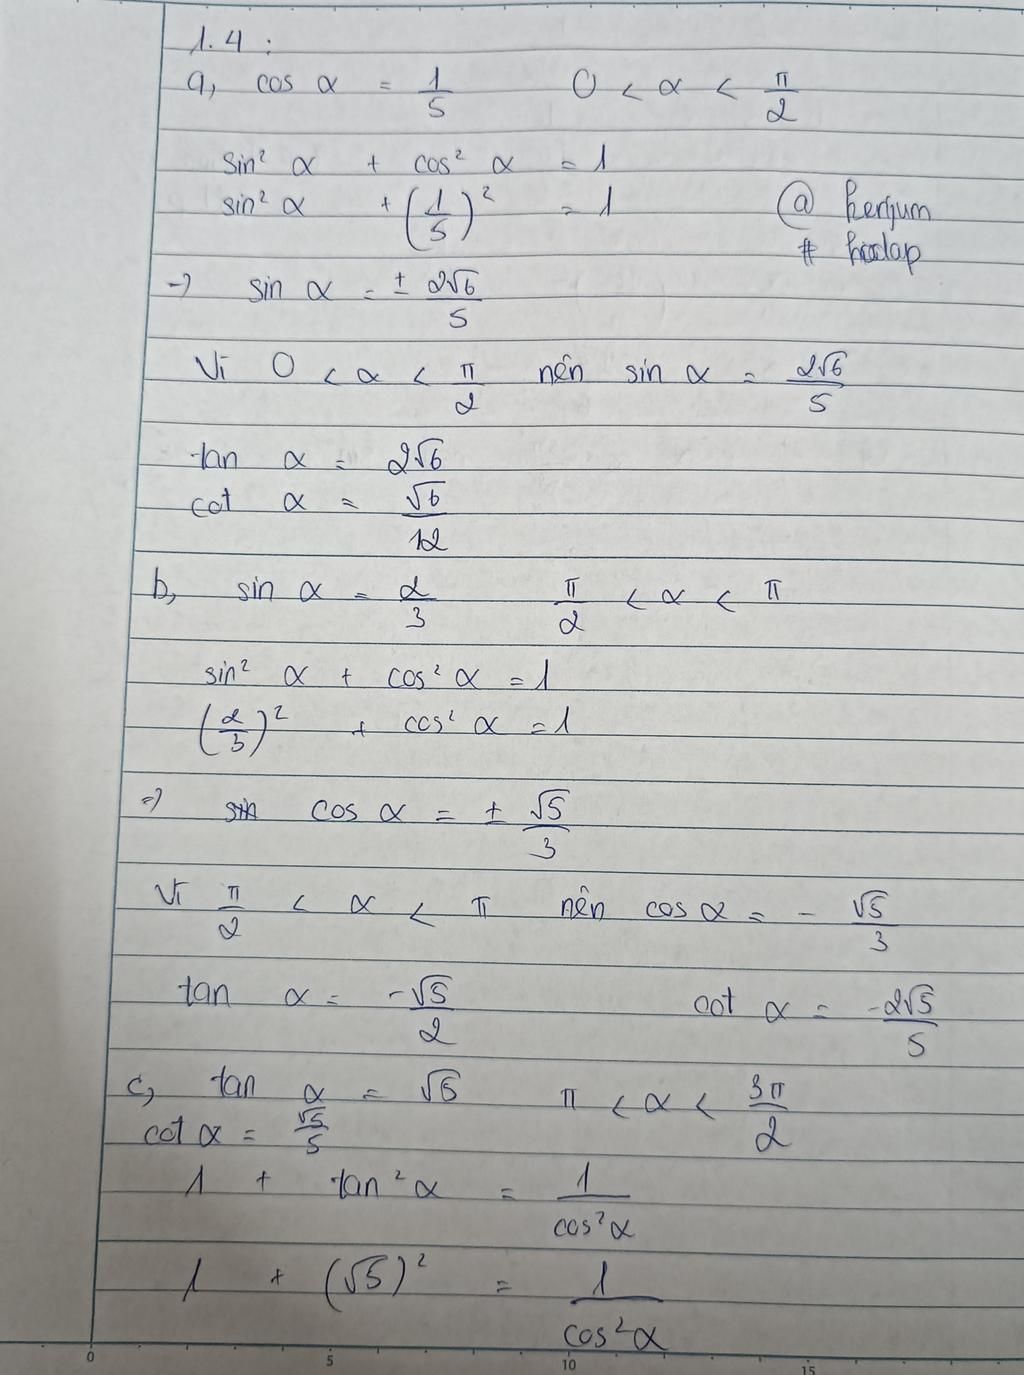 1.4 :
a, cos α = 1/5 0 < α < π/2
sin² α + cos² α = 1
sin² α + (1/5)² = 1
@
#
=) sin α = ± 2√6/5
Vì 0 < α < π/2 nên sin α = 2√6/5
tan α = 2√6
cot α = √6/12
b, sin α = 2/3 π/2 < α < π
sin² α + cos² α = 1
(2/3)² + cos² α = 1
=) cos α = ± √5/3
Vì π/2 < α < π nên cos α = - √5/3
tan α = -√5/2 cot α = -2√5/5
c, tan α = √5 π < α < 3π/2
cot α = √5/5
1 + tan² α = 1/cos² α
1 + (√5)² = 1/cos² α
0 5 10 15